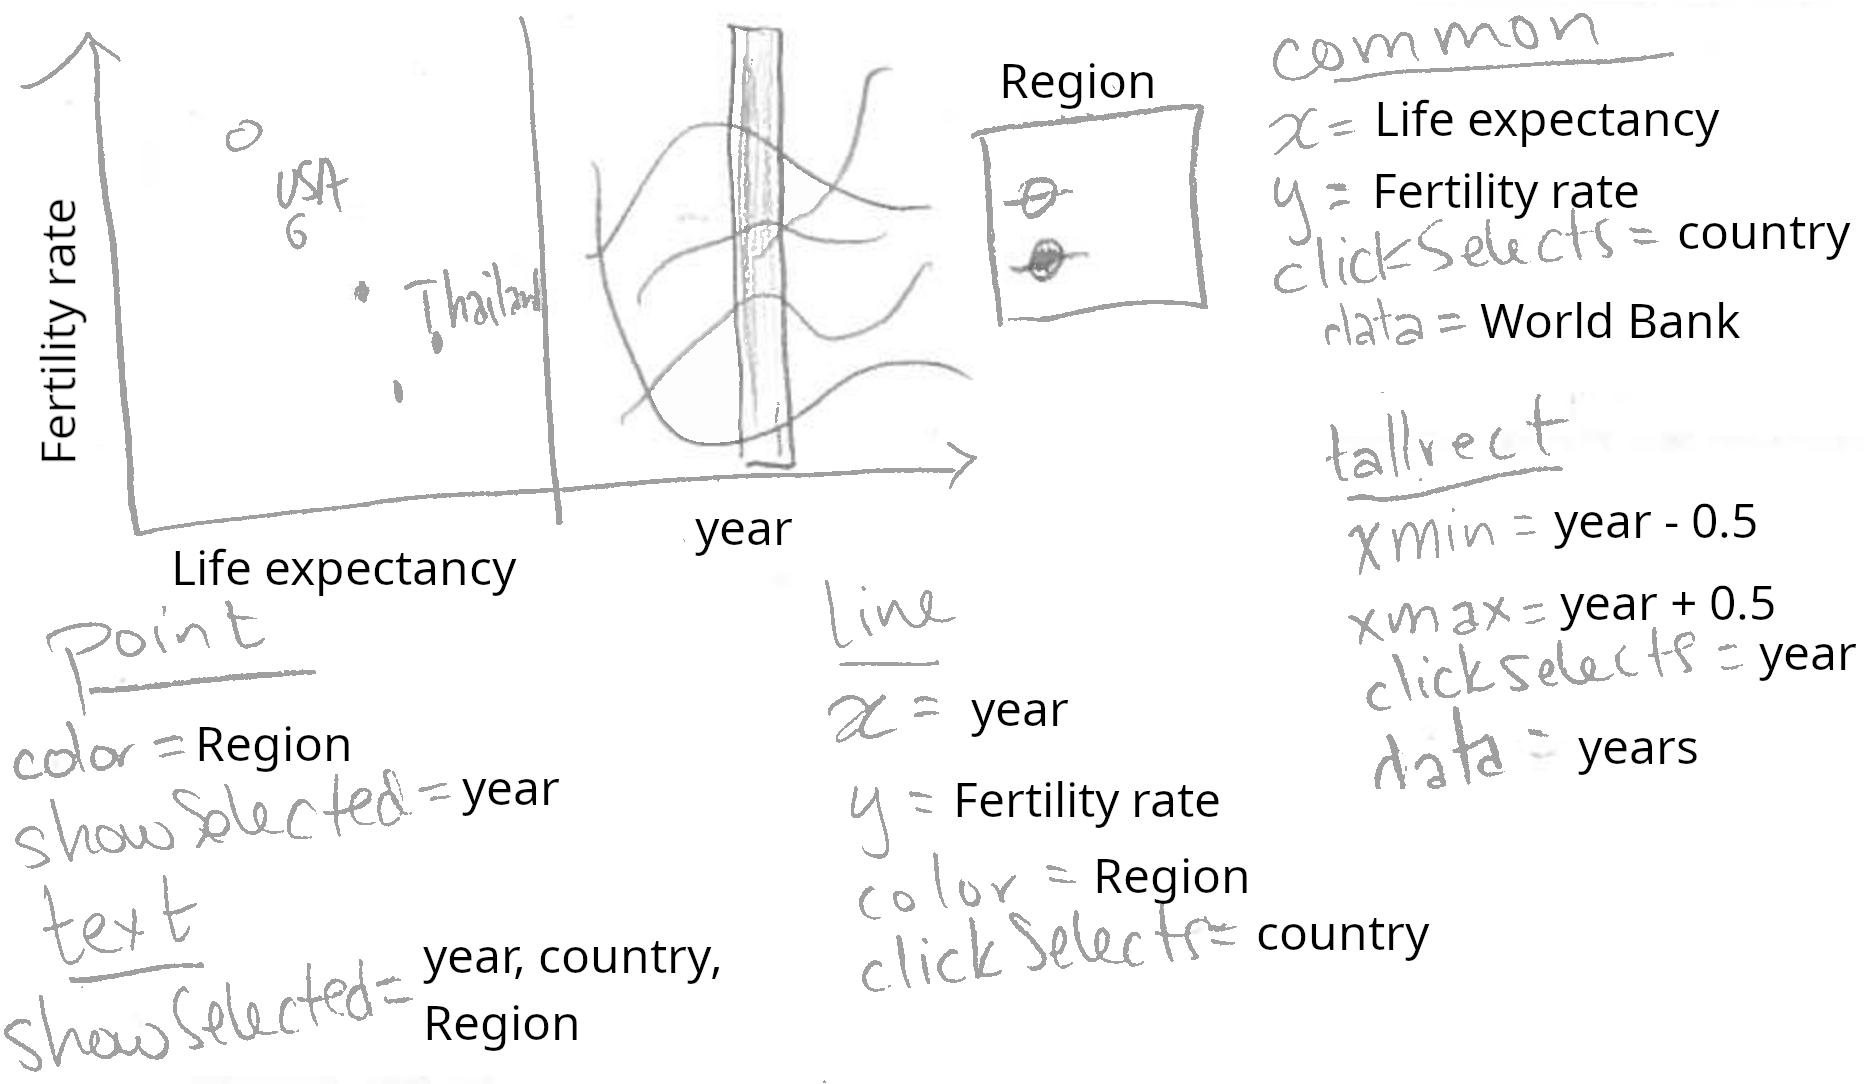 Fertility rate
USA
6
Thailand
Life expectancy
year
Region
common
x = Life expectancy
y = Fertility rate
clickSelects = country
data = World Bank
tallrect
xmin = year - 0.5
xmax = year + 0.5
clickSelects = year
data = years
point
color = Region
showSelected = year
text
showSelected = year, country,
Region
line
x = year
y = Fertility rate
color = Region
clickSelects = country